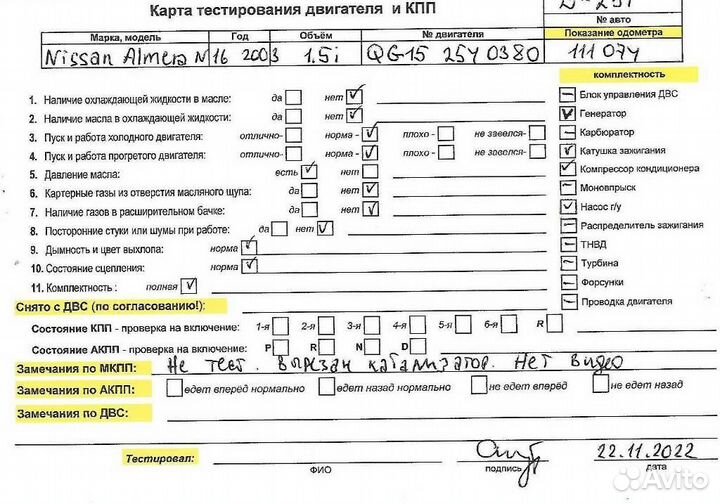 Карта тестирования двигателя и КПП
№ авто
Марка, модель Год Объём № двигателя Показание одометра
Nissan Almera N16 2003 1.5i QG15 254 0380 111 074
комплектность
1. Наличие охлаждающей жидкости в масле: да нет
2. Наличие масла в охлаждающей жидкости: да нет
3. Пуск и работа холодного двигателя: отлично- норма - плохо - не завелся-
4. Пуск и работа прогретого двигателя: отлично- норма - плохо - не завелся-
5. Давление масла: есть нет
6. Картерные газы из отверстия масляного щупа: да нет
7. Наличие газов в расширительном бачке: да нет
8. Посторонние стуки или шумы при работе: да нет
9. Дымность и цвет выхлопа: норма
10. Состояние сцепления: норма
11. Комплектность : полная
Блок управления ДВС
Генератор
Карбюратор
Катушка зажигания
Компрессор кондиционера
Моновпрыск
Насос г/у
Распределитель зажигания
ТНВД
Турбина
Форсунки
Проводка двигателя
Снято с ДВС (по согласованию!):
Состояние КПП - проверка на включение: 1-я 2-я 3-я 4-я 5-я 6-я R
Состояние АКПП - проверка на включение: P R N D
Замечания по МКПП: Не тест. вырезан катализатор. Нет видео
Замечания по АКПП: едет вперёд нормально едет назад нормально не едет вперёд не едет назад
Замечания по ДВС:
Тестировал: 22.11.2022
ФИО подпись дата
Avito